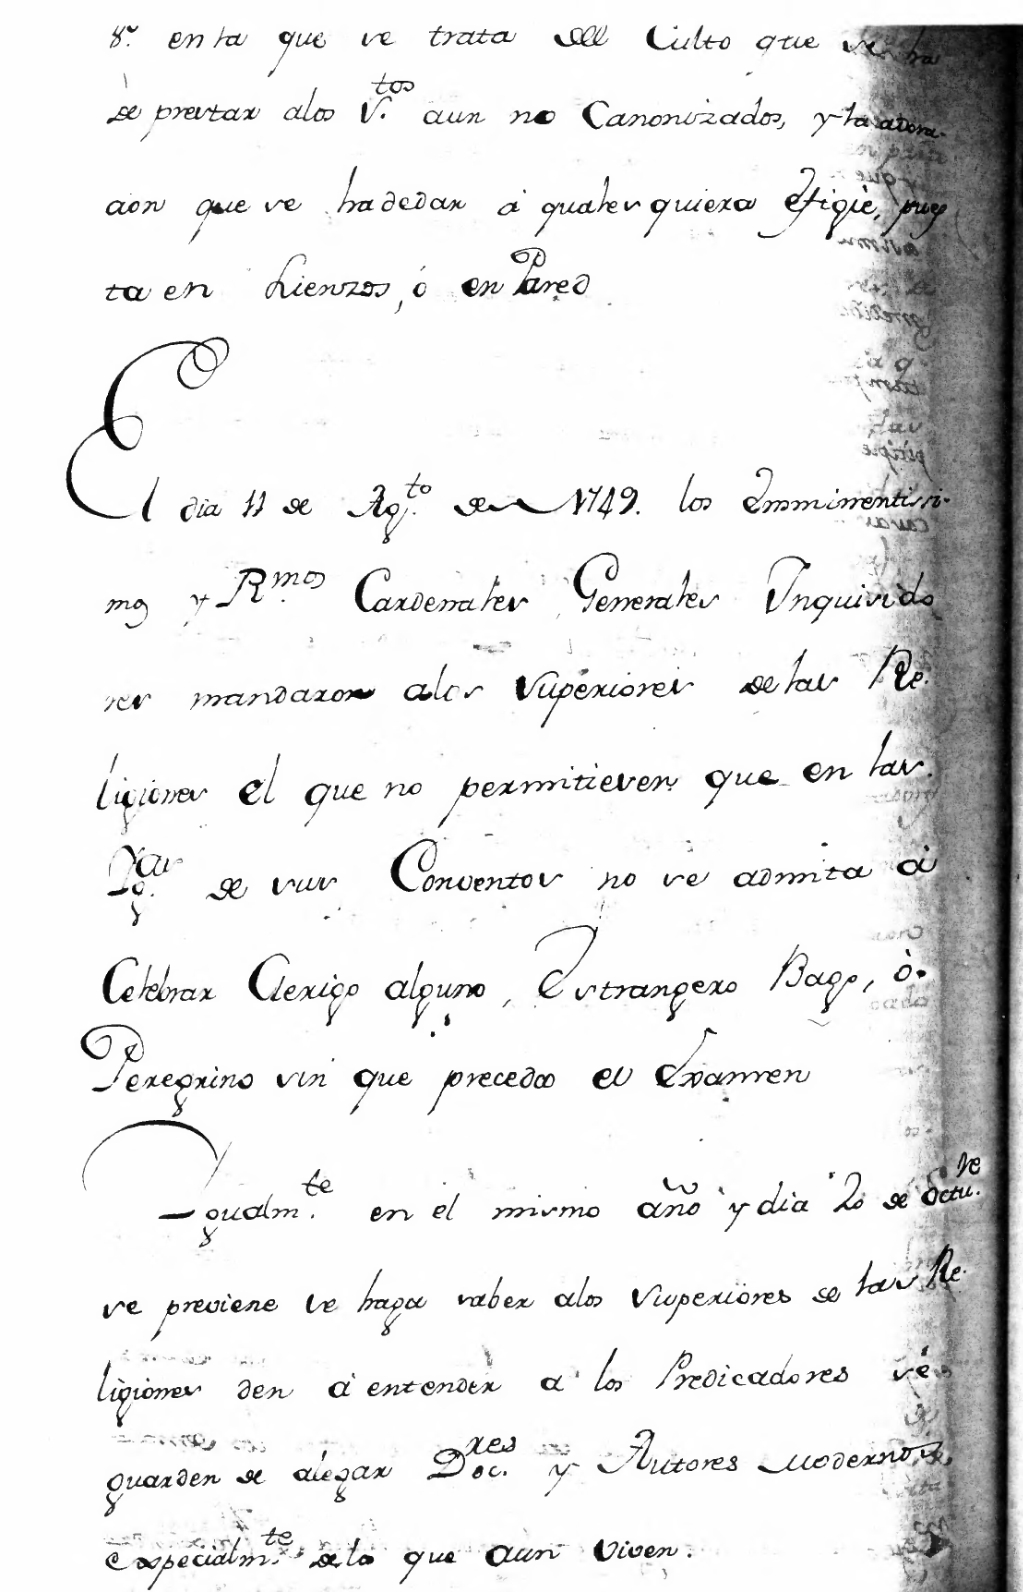 8.º en la que se trata del Culto que se ha
de prestar alos V.tos aun no Canonizados, y la adora-
cion que se ha dedar á qualesquiera efigie, pues
ta en Lienzos, ó en Pared
El dia 11 de Ag.to de 1749. los Emminentissi-
mos y R.mos Cardenales Generales Inquisido
res mandaron alos Superiores delas Re-
ligiones el que no permitiesen que en las
Yg.as de sus Conventos no se admita á
Celebrar Clerigo alguno, Estrangero Bago, ó
Peregrino sin que preceda el Examen
Ygualm.te en el mismo año y dia 20 de Octu.re
se previene se haga saber alos Superiores de las Re-
ligiones den á entender a los Predicadores se
guarden de alegar Doc.res y Autores modernos,
especialm.te delos que aun viven.